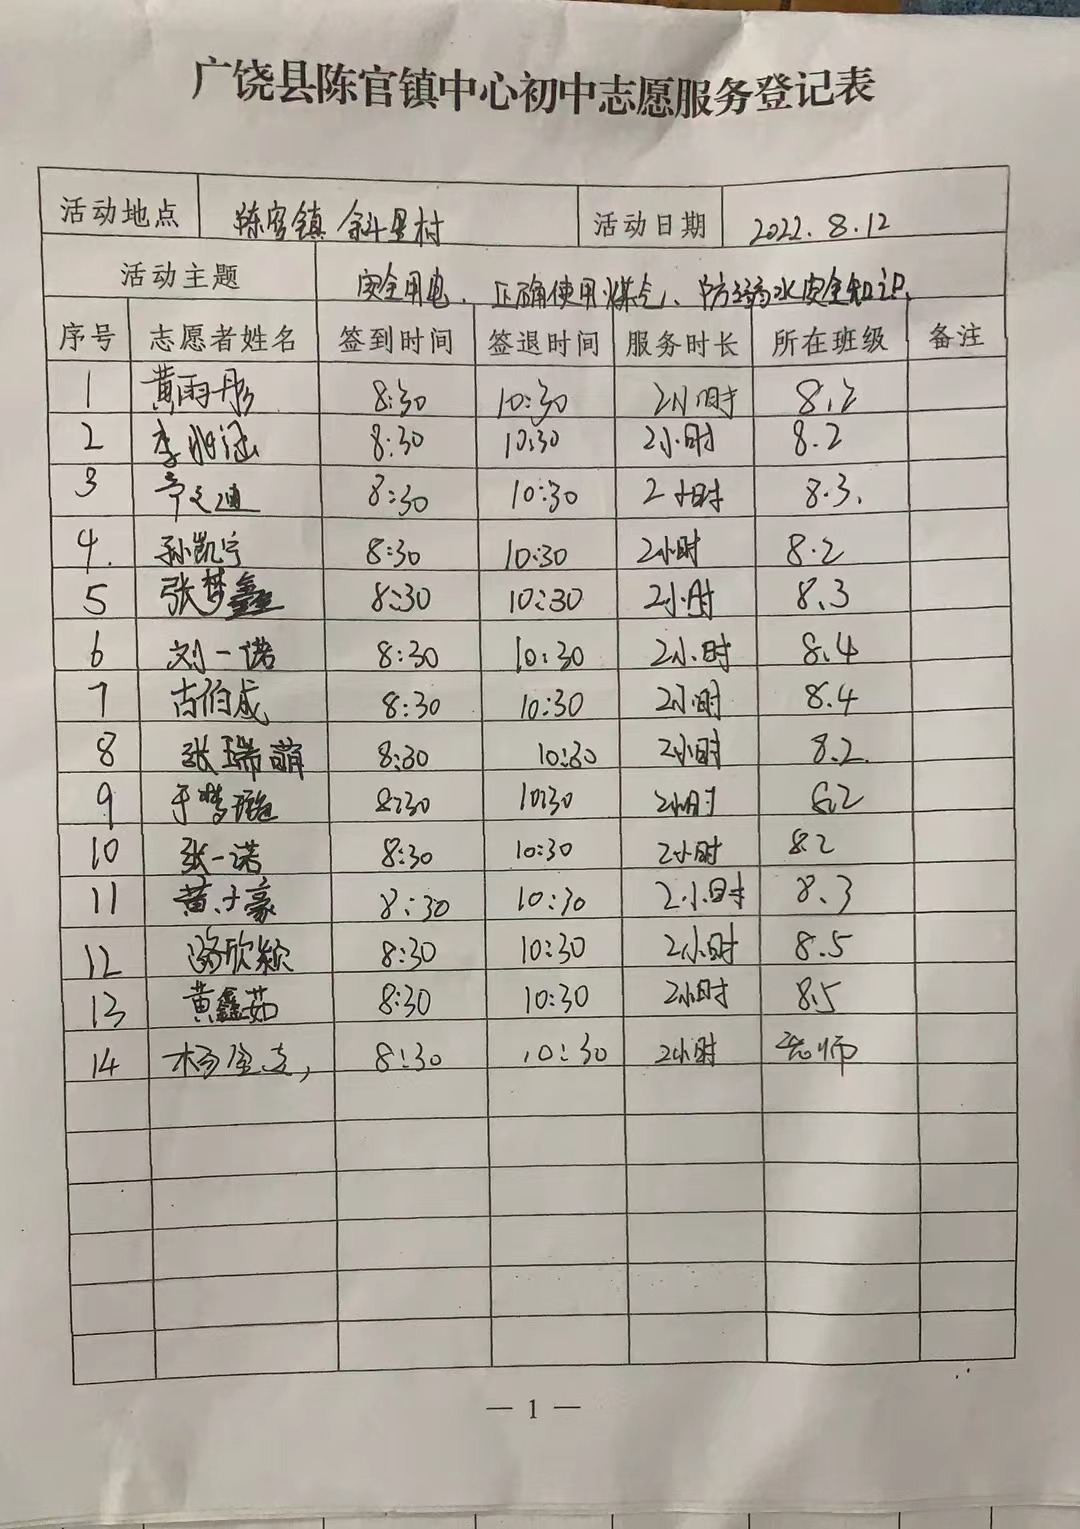 广饶县陈官镇中心初中志愿服务登记表
活动地点 陈官镇 斜里村 活动日期 2022.8.12
活动主题 安全用电、正确使用煤气、防溺水安全知识.
序号 志愿者姓名 签到时间 签退时间 服务时长 所在班级 备注
1 黄雨彤 8:30 10:30 2小时 8.2
2 李 涵 8:30 10:30 2小时 8.2
3 8:30 10:30 2小时 8.3.
4. 孙凯宁 8:30 10:30 2小时 8.2
5 张梦鑫 8:30 10:30 2小时 8.3
6 刘一诺 8:30 10:30 2小时 8.4
7 古伯成 8:30 10:30 2小时 8.4
8 张瑞萌 8:30 10:30 2小时 8.2.
9 于梦璐 8:30 10:30 2小时 8.2
10 张一诺 8:30 10:30 2小时 8.2
11 黄子豪 8:30 10:30 2小时 8.3
12 欣颖 8:30 10:30 2小时 8.5
13 黄鑫茹 8:30 10:30 2小时 8.5
14 杨 8:30 10:30 2小时 老师
— 1 —